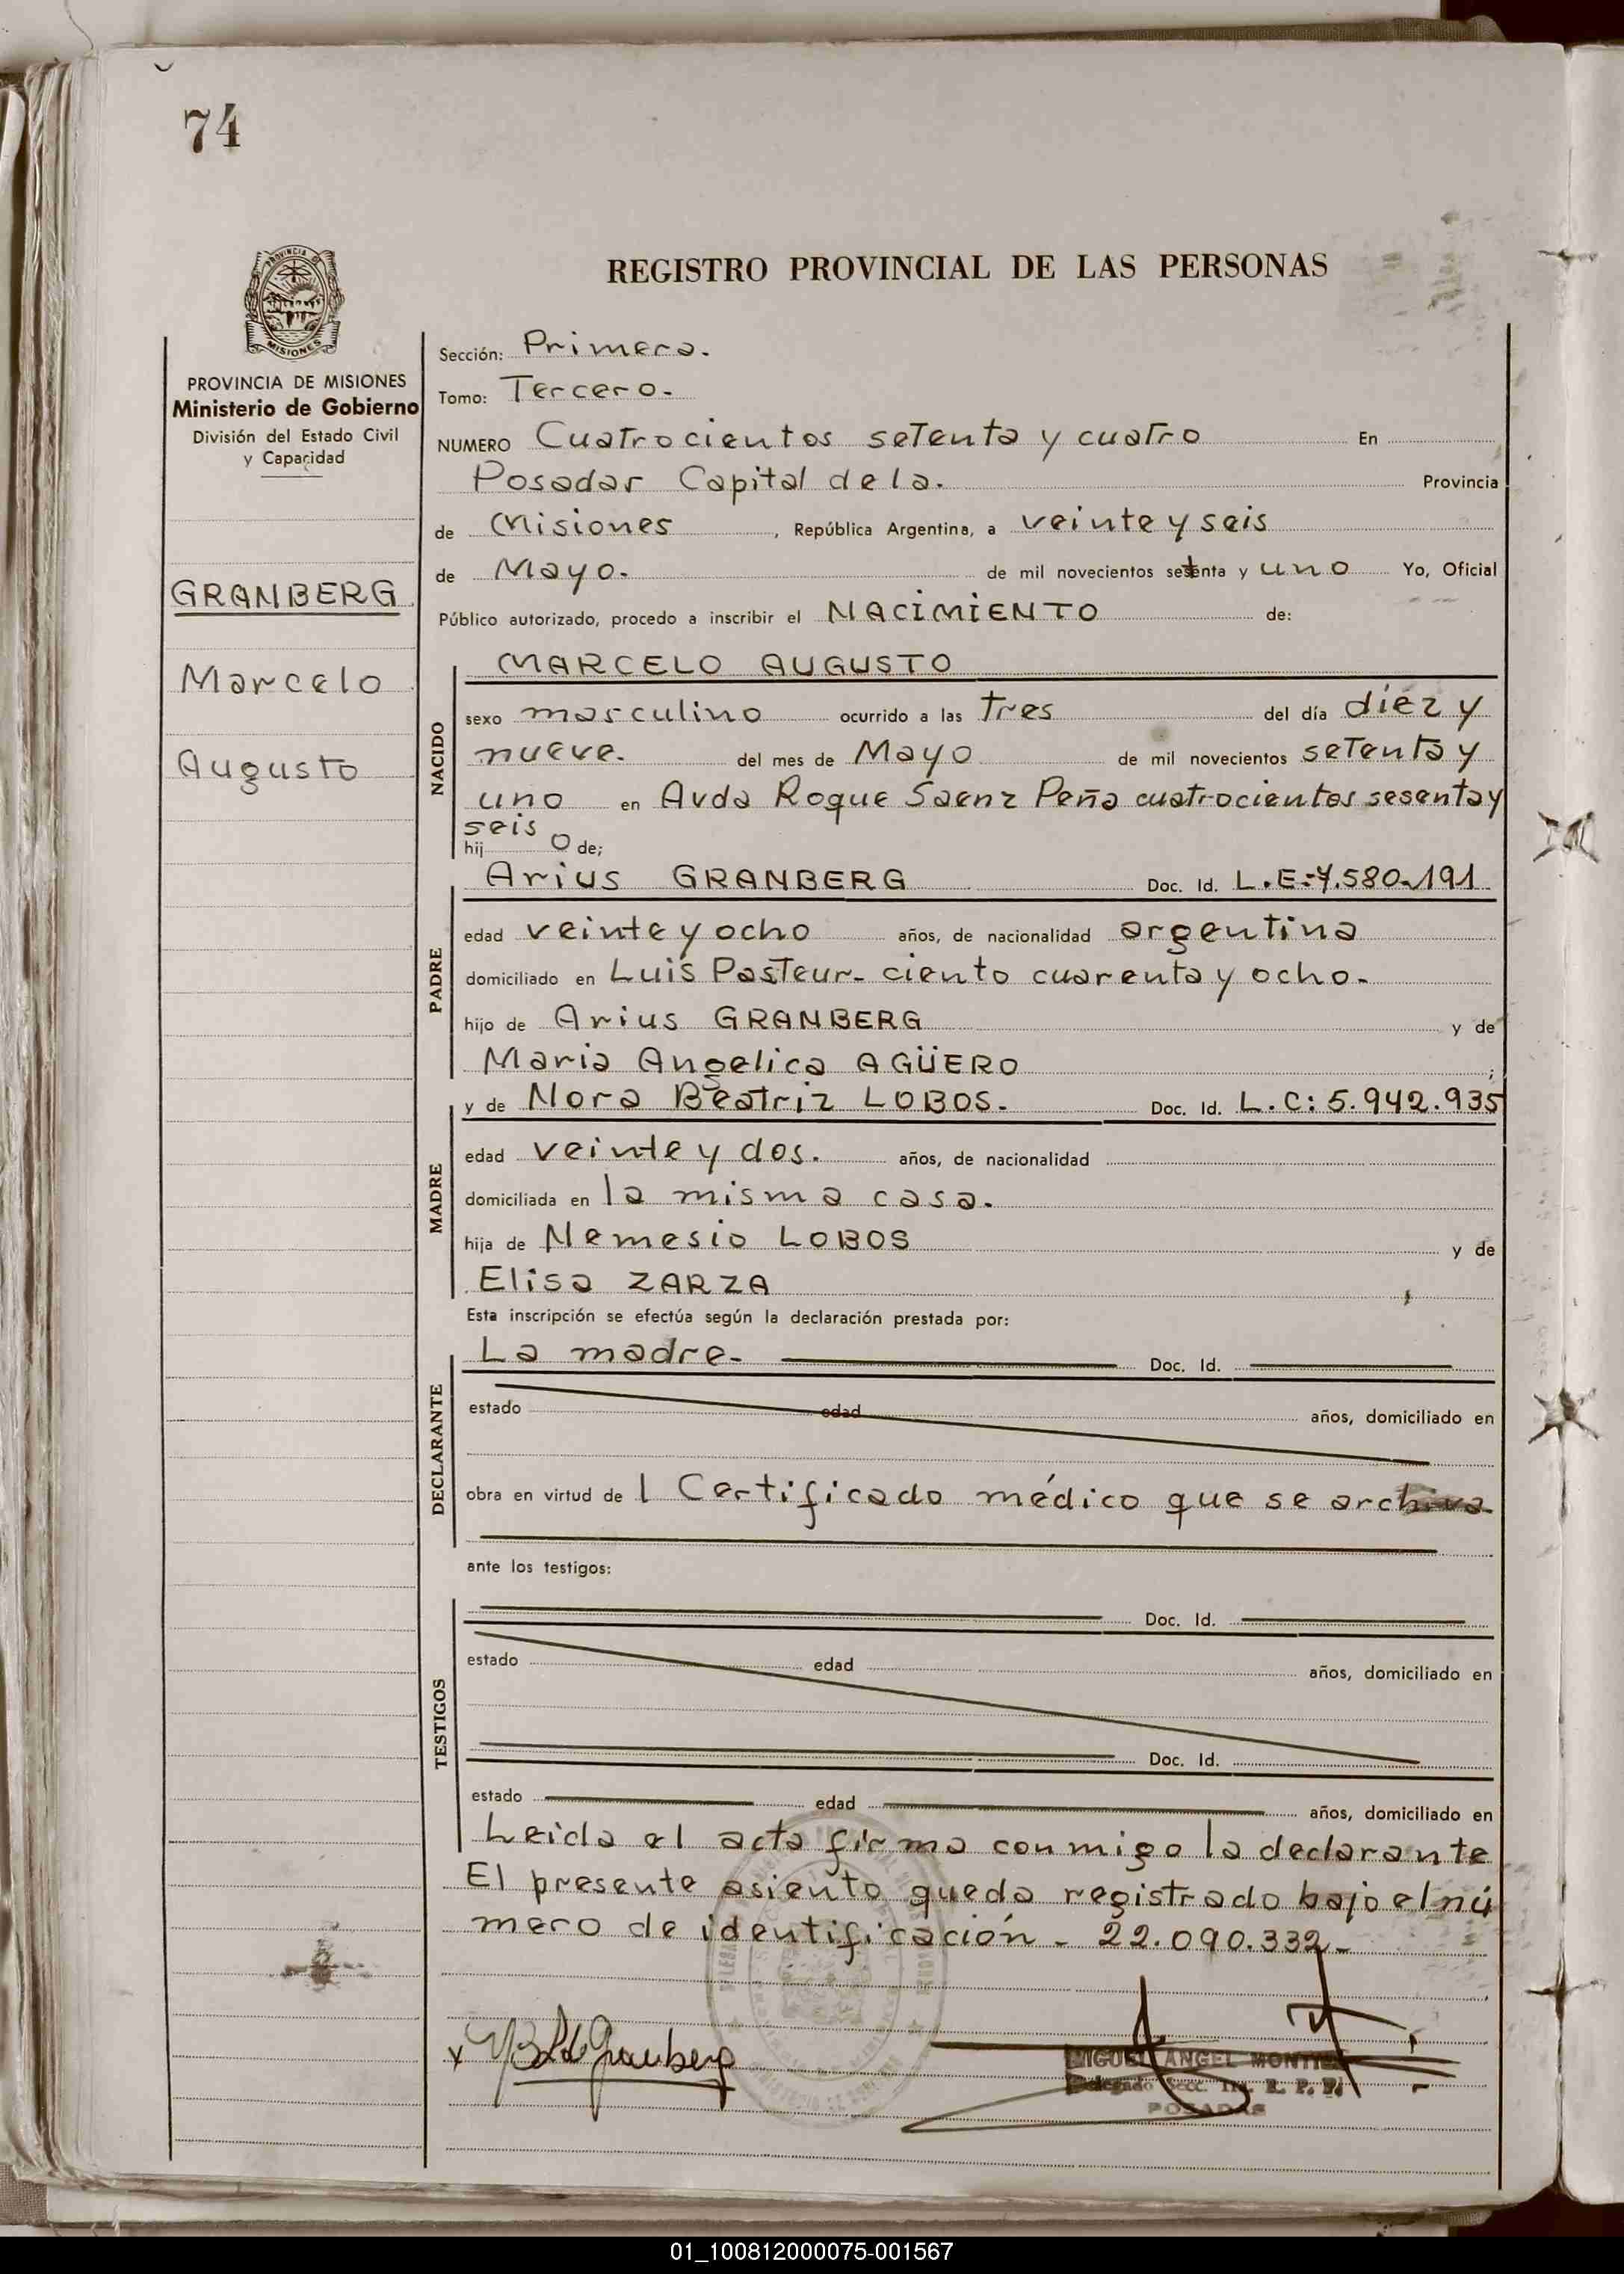 74
PROVINCIA DE
MISIONES
PROVINCIA DE MISIONES
Ministerio de Gobierno
División del Estado Civil
y Capacidad
GRANBERG
Marcelo
Augusto
REGISTRO PROVINCIAL DE LAS PERSONAS
Sección: Primera.
Tomo: Tercero.
NUMERO Cuatrocientos setenta y cuatro En
Posadas Capital de la. Provincia
de Misiones, República Argentina, a veinte y seis
de Mayo. de mil novecientos setenta y uno Yo, Oficial
Público autorizado, procedo a inscribir el NACIMIENTO de:
NACIDO
MARCELO AUGUSTO
sexo masculino ocurrido a las tres del día diez y
nueve. del mes de Mayo de mil novecientos setenta y
uno en Avda Roque Saenz Peña cuatrocientos sesenta y
seis
hij o de;
PADRE
Arius GRANBERG Doc. Id. L.E:7.580.191
edad veinte y ocho años, de nacionalidad argentina
domiciliado en Luis Pasteur- ciento cuarenta y ocho.
hijo de Arius GRANBERG y de
Maria Angelica AGÜERO ;
MADRE
y de Nora Beatriz LOBOS. Doc. Id. L.C: 5.942.935
edad veinte y dos. años, de nacionalidad
domiciliada en la misma casa.
hija de Nemesio LOBOS y de
Elisa ZARZA ,
Esta inscripción se efectúa según la declaración prestada por:
DECLARANTE
La madre- Doc. Id.
estado edad años, domiciliado en
obra en virtud de l Certificado médico que se archiva
ante los testigos:
TESTIGOS
Doc. Id.
estado edad años, domiciliado en
Doc. Id.
estado edad años, domiciliado en
Leida el acta firma conmigo la declarante
El presente asiento queda registrado bajo el nú
mero de identificación - 22.090.332-
x Granberg
MIGUEL ANGEL
Delegado Secc. R. P. P.
POSADAS
01_100812000075-001567